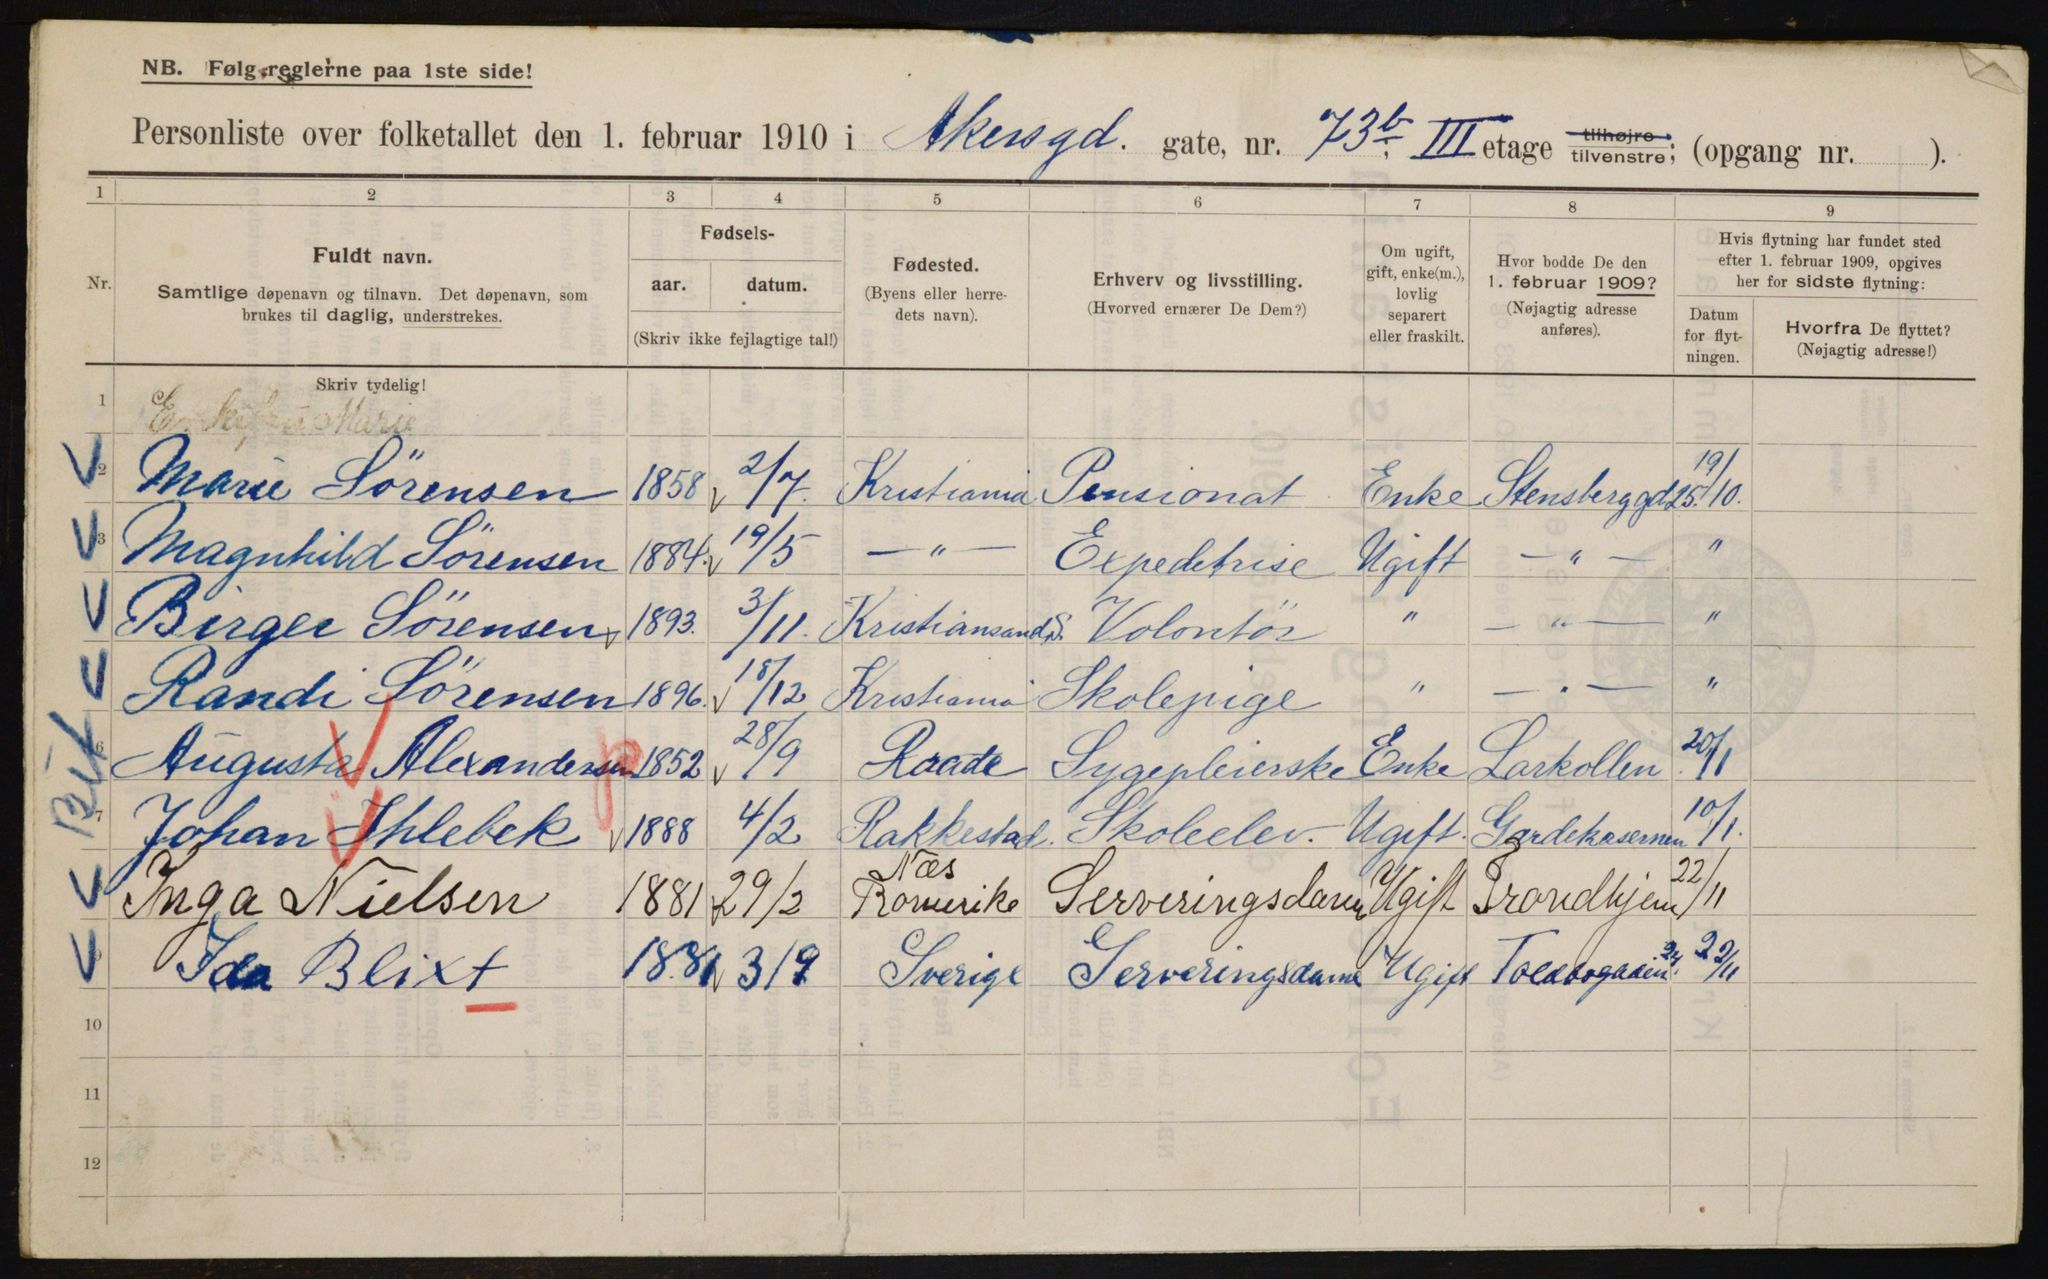 NB. Følg reglerne paa 1ste side!
Personliste over folketallet den 1. februar 1910 i Akersgd. gate, nr. 73b. III etage tilhøjre tilvenstre; (opgang nr. ).
1 2 3 4 5 6 7 8 9
Nr.
Fuldt navn.
Samtlige døpenavn og tilnavn. Det døpenavn, som
brukes til daglig, understrekes.
Fødsels-
aar. datum.
(Skriv ikke fejlagtige tal!)
Fødested.
(Byens eller herre-
dets navn).
Erhverv og livsstilling.
(Hvorved ernærer De Dem?)
Om ugift,
gift, enke(m.),
lovlig
separert
eller fraskilt.
Hvor bodde De den
1. februar 1909?
(Nøjagtig adresse
anføres).
Hvis flytning har fundet sted
efter 1. februar 1909, opgives
her for sidste flytning:
Datum
for flyt-
ningen.
Hvorfra De flyttet?
(Nøjagtig adresse!)
Skriv tydelig!
1 Marie
2 Marie Sörensen 1858 2/7. Kristiania Pensionat Enke Stensberggd 25. 19/10.
3 Magnhild Sörensen 1884. 19/5 — " — Expeditrise Ugift — " — "
Birger Sörensen 1893. 3/11. Kristiansand S. Volontör " — " — "
Randi Sörensen 1896. 18/12 Kristiania Skolepige " — " — "
6 Augusta Alexandersen 1852 28/9 Raade Sygepleierske Enke Larkollen 20/1
7 Johan Ihlebek 1888 4/2 Rakkestad. Skoleelev. Ugift. Gardekasernen 10/1.
Inga Nielsen 1881 29/2 Næs Romerike Serveringsdame Ugift Trondhjem 22/11
9 Ida Blixt 1881 3/9 Sverige Serveringsdame Ugift Toldbogaden 24. 22/11
10
11
12